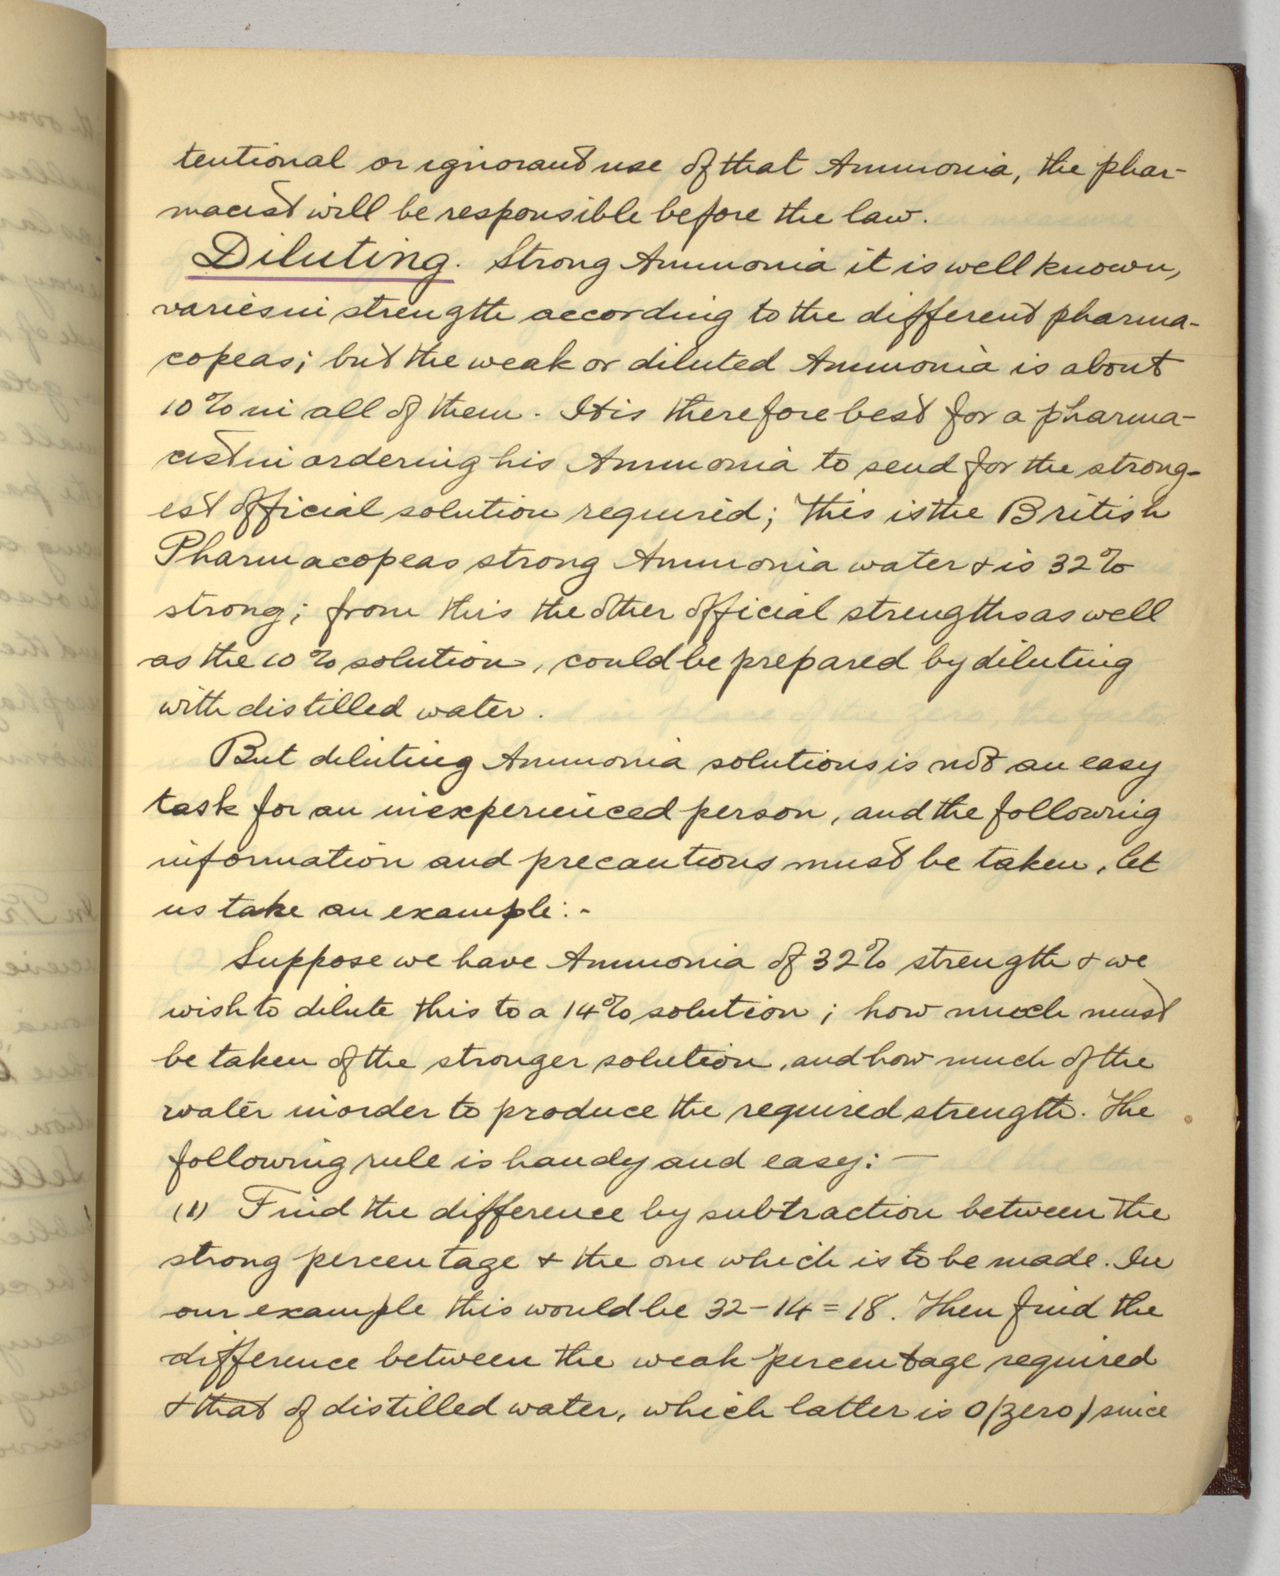 tentional or ignorant use of that Ammonia, the phar-
macist will be responsible before the law.
Diluting. Strong Ammonia it is well known,
varies in strength according to the different pharma-
copeas; but the weak or diluted Ammonia is about
10% in all of them. It is therefore best for a pharma-
cist in ordering his Ammonia to send for the strong-
est official solution required; this is the British
Pharmacopeas strong Ammonia water & is 32%
strong; from this the other official strengths as well
as the 10% solution, could be prepared by diluting
with distilled water.
But diluting Ammonia solutions is not an easy
task for an inexperienced person, and the following
information and precautions must be taken, let
us take an example:-
Suppose we have Ammonia of 32% strength & we
wish to dilute this to a 14% solution; how much must
be taken of the stronger solution, and how much of the
water in order to produce the required strength. The
following rule is handy and easy:—
(1) Find the difference by subtraction between the
strong percentage & the one which is to be made. In
our example this would be 32-14=18. Then find the
difference between the weak percentage required
& that of distilled water, which latter is 0/zero/since